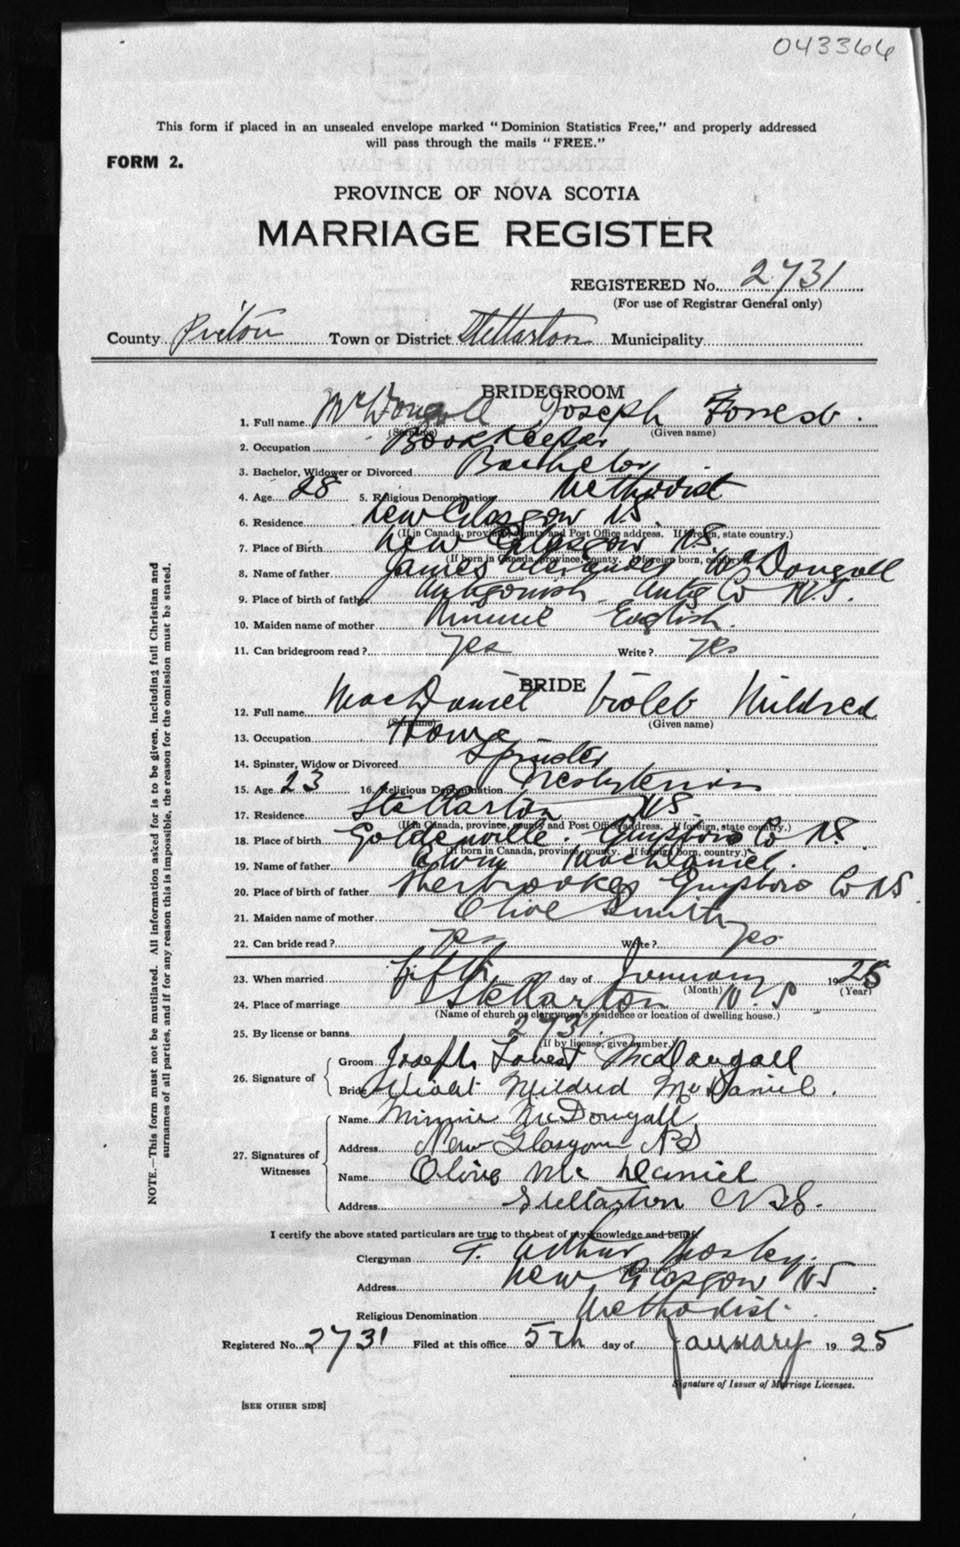 043366
This form if placed in an unsealed envelope marked "Dominion Statistics Free," and properly addressed
will pass through the mails "FREE."
FORM 2.
PROVINCE OF NOVA SCOTIA
MARRIAGE REGISTER
REGISTERED No. 2731
(For use of Registrar General only)
County Pictou Town or District Stellarton Municipality
BRIDEGROOM
1. Full name McDougall Joseph Forrest
(Surname) (Given name)
2. Occupation Bookkeeper
3. Bachelor, Widower or Divorced Bachelor
4. Age 28 5. Religious Denomination Methodist
6. Residence New Glasgow N.S.
(If in Canada, province, county and Post Office address. If foreign, state country.)
7. Place of Birth New Glasgow N.S.
(If born in Canada, province, county. If foreign born, country.)
8. Name of father James Alexander McDougall
9. Place of birth of father Antigonish Antig Co N.S.
10. Maiden name of mother Minnie English
11. Can bridegroom read? yes Write? yes
BRIDE
12. Full name MacDaniel Violet Mildred
(Surname) (Given name)
13. Occupation Home
14. Spinster, Widow or Divorced Spinster
15. Age 23 16. Religious Denomination Presbyterian
17. Residence Stellarton NS
(If in Canada, province, county and Post Office address. If foreign, state country.)
18. Place of birth Goldenville Guysboro Co N.S.
(If born in Canada, province, county. If foreign born, country.)
19. Name of father MacDaniel.
20. Place of birth of father Sherbrooke Guysboro Co NS
21. Maiden name of mother Olive Smith
22. Can bride read? yes Write? yes
23. When married fifth day of January 1925
(Month) (Year)
24. Place of marriage Stellarton N.S
(Name of church or clergyman's residence or location of dwelling house.)
25. By license or banns 2731.
(If by license, give number.)
26. Signature of Groom Joseph Forrest McDougall
Bride Violet Mildred McDaniel.
27. Signatures of Witnesses Name Minnie McDougall
Address New Glasgow NS
Name Olive McDaniel
Address Stellarton N.S.
I certify the above stated particulars are true to the best of my knowledge and belief.
Clergyman Arthur Mosley.
(Signature)
Address New Glasgow NS
Religious Denomination Methodist.
Registered No. 2731 Filed at this office 5th day of January 1925
Signature of Issuer of Marriage Licenses.
[SEE OTHER SIDE]
NOTE.—This form must not be mutilated. All information asked for is to be given, including full Christian and
surnames of all parties, and if for any reason this is impossible, the reason for the omission must be stated.